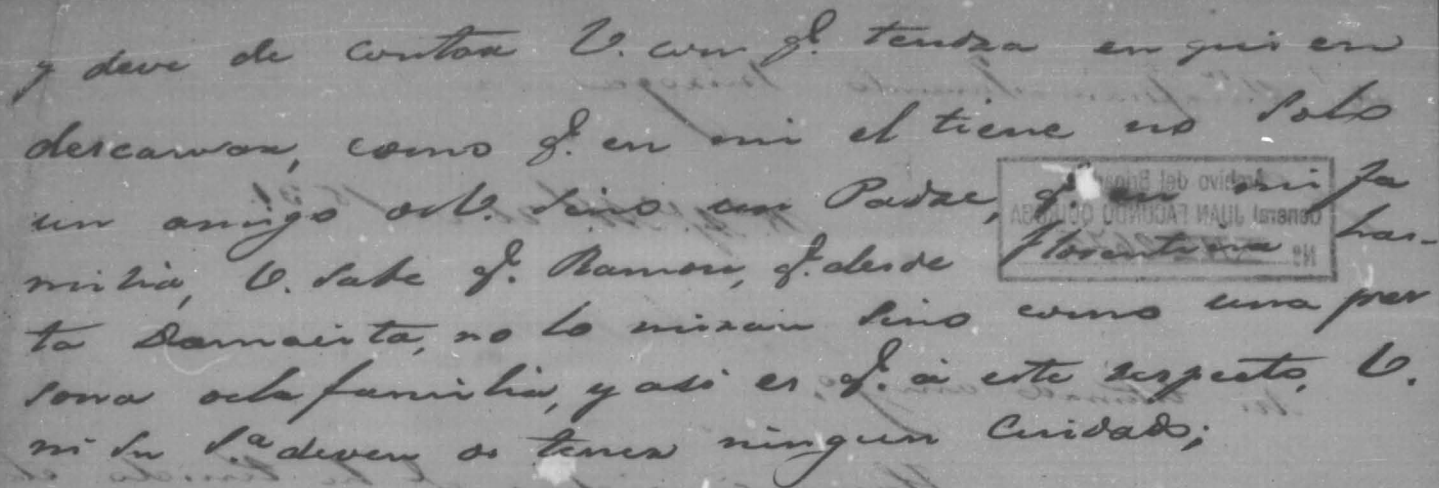 y deve de contar V. con q.e tendra en quien
descansar, como q.e en mi el tiene no solo
un amigo de V. sino un Padre, q.e en mi fa
milia, V. sabe q.e Ramon, q.e desde Florentina has-
ta Damacita, no lo miran sino como una per
sona de la familia, y asi es q.e á este respecto, V.
ni su S.a deven de tener ningun Cuidado;
Archivo del Brigadier
General JUAN FACUNDO QUIROGA
Nº